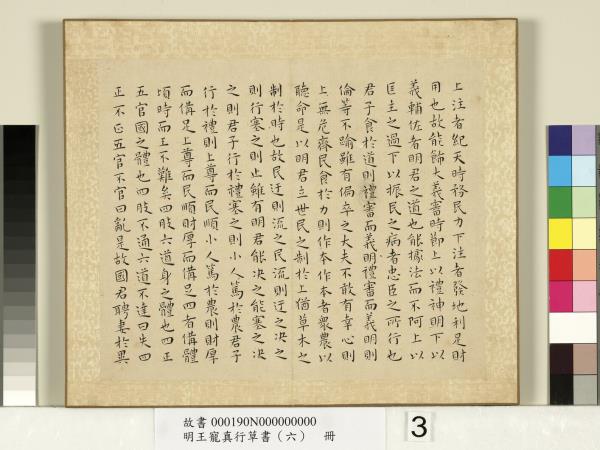 上注者紀天時務民力下注者發地利足財
用也故能飾大義審時節上以禮神明下以
義輔佐者明君之道也能據法而不阿上以
匡主之過下以振民之病者忠臣之所行也
君子食於道則禮審而義明禮審而義明則
倫等不踰雖有偏卒之大夫不敢有幸心則
上無危齊民食於力則作本作本者眾農以
聽命是以明君立世民之制於上猶草木之
制於時也故民迂則流之民流則迂之決之
則行塞之則止雖有明君能决之能塞之决
之則君子行於禮塞之則小人篤於農君子
行於禮則上尊而民順小人篤於農則財厚
而備足上尊而民順財厚而備足四者備體
頃時而王不難矣四肢六道身之體也四正
五官國之體也四肢不通六道不達曰失四
正不正五官不官曰亂是故國君聘妻於異
故書 000190N000000000
明王寵真行草書（六） 冊
3